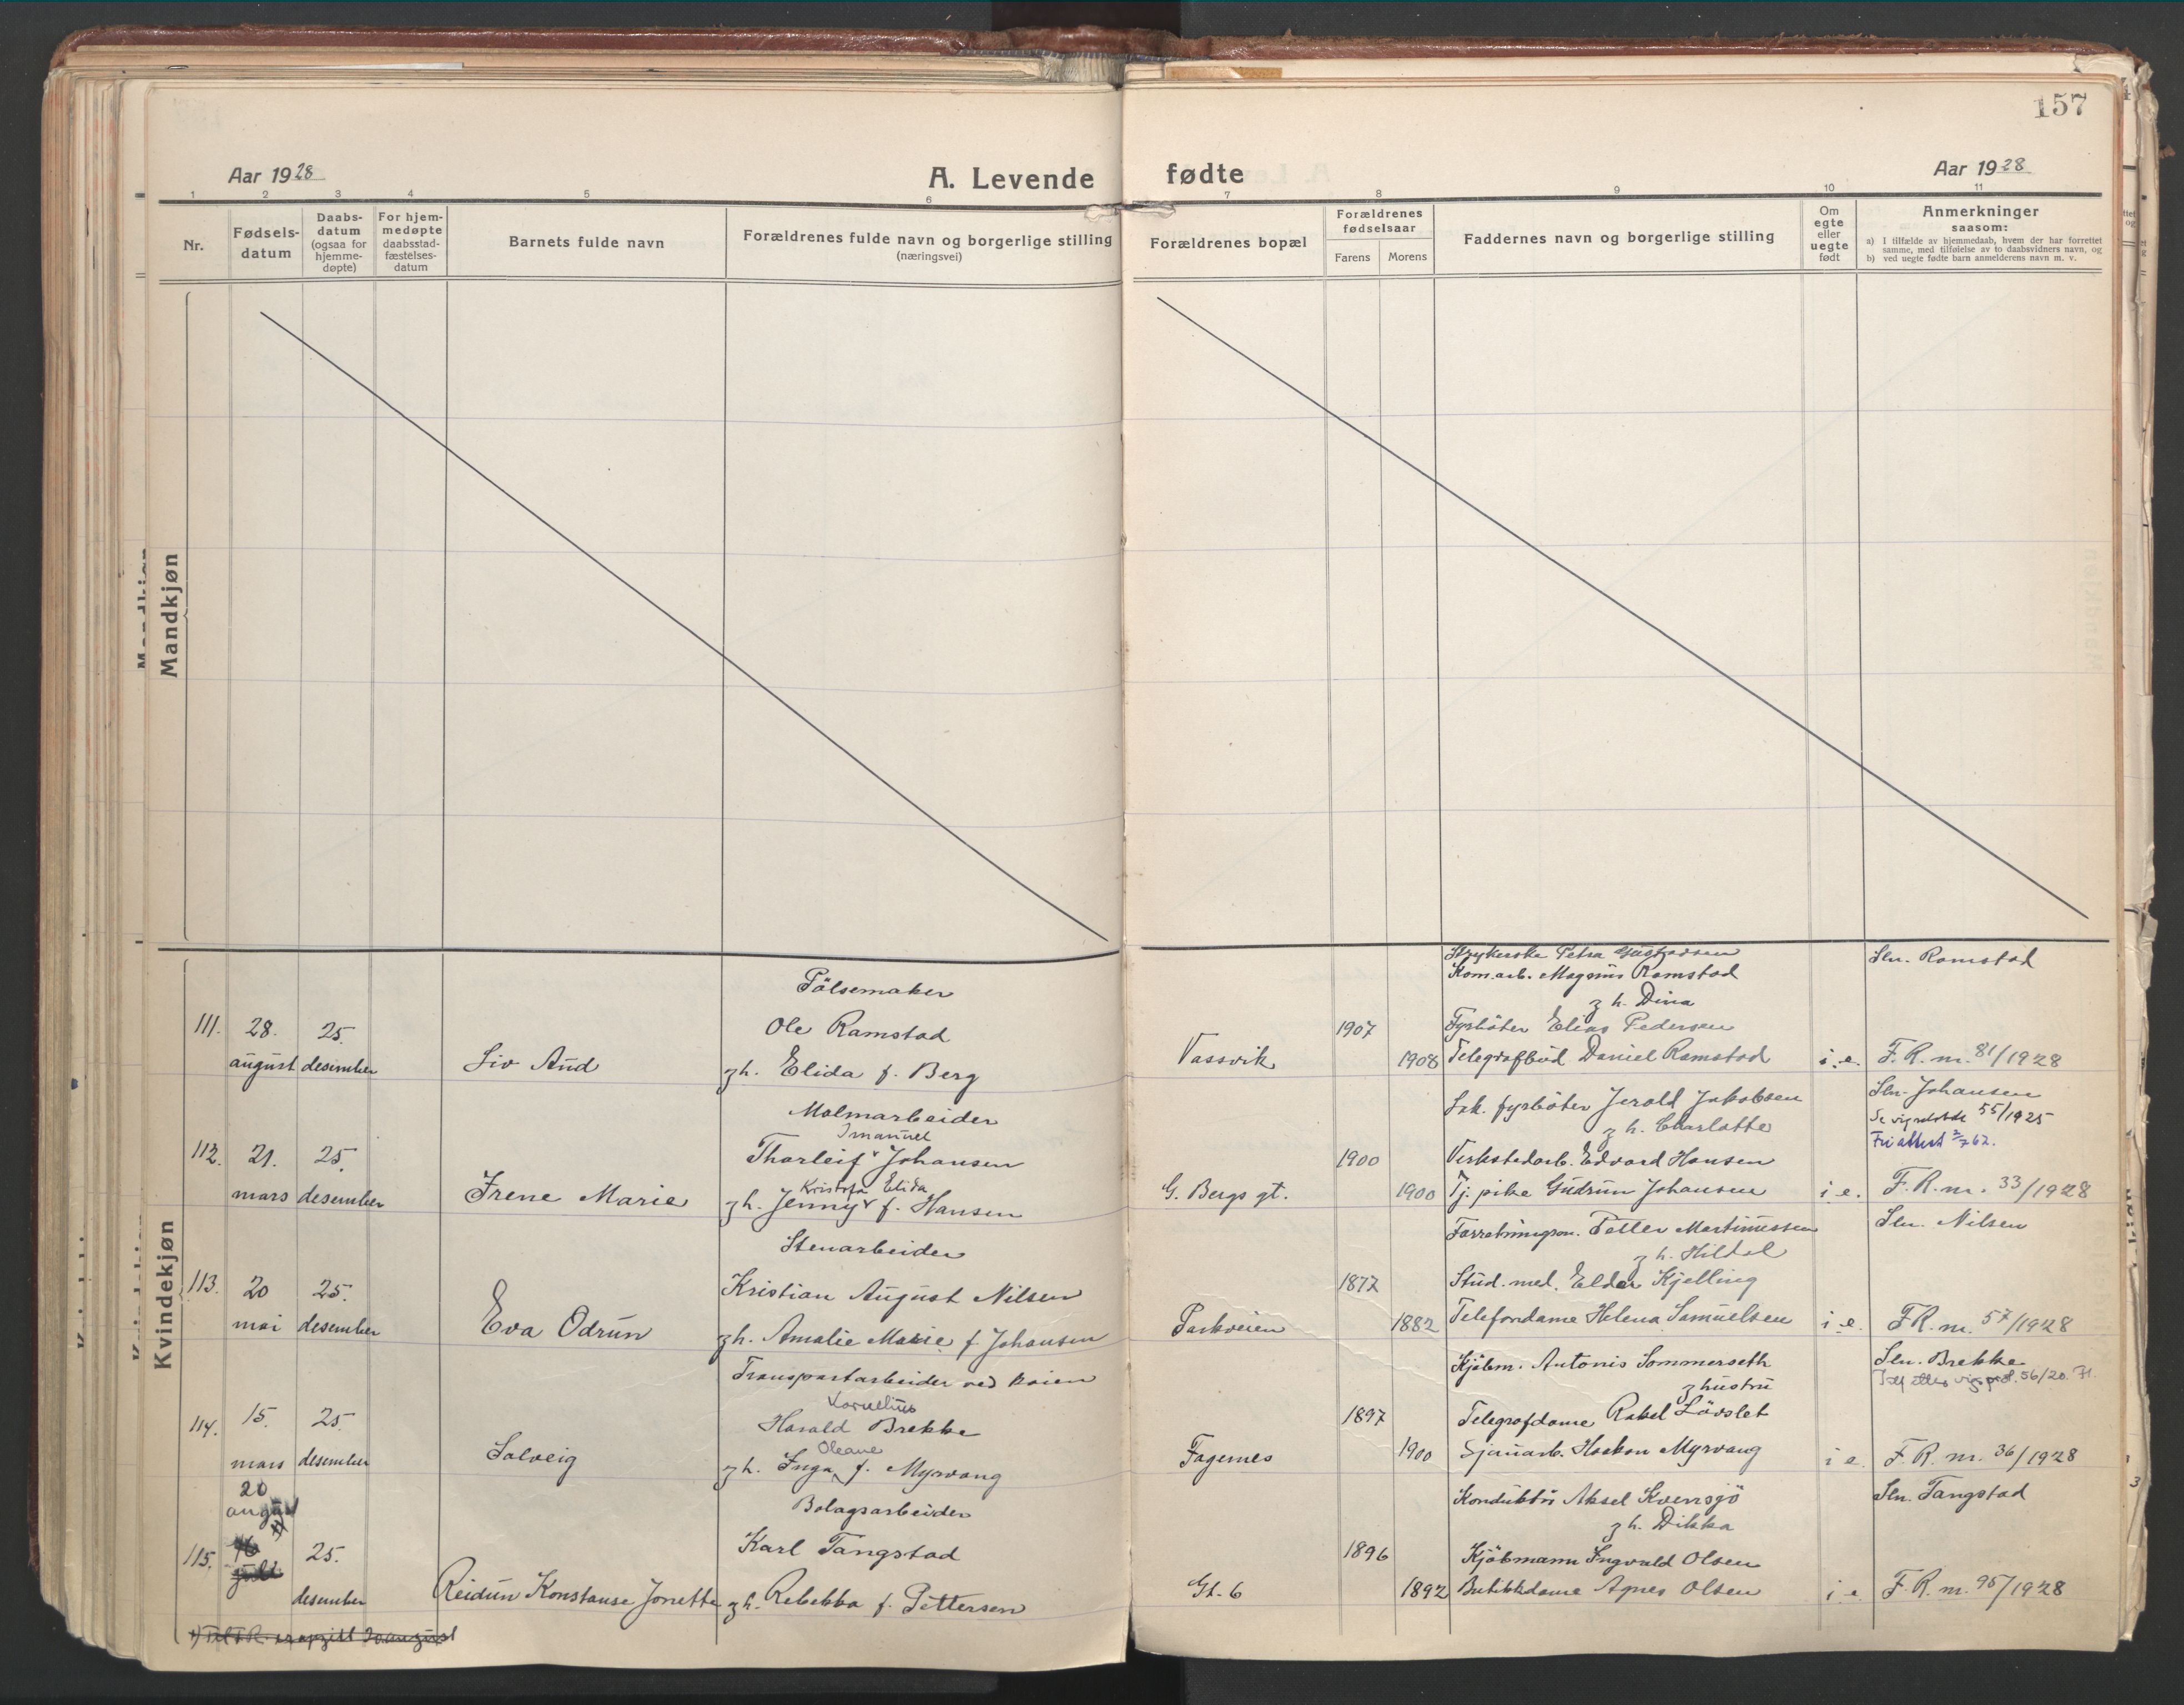 157
Aar 1928
A. Levende fødte
Aar 1928
1 2 3 4 5 6 7 8 9 10 11
Nr.
Fødsels-
datum
Daabs-
datum
(ogsaa for
hjemme-
døpte)
For hjem-
medøpte
daabsstad-
fæstelses-
datum
Barnets fulde navn
Forældrenes fulde navn og borgerlige stilling
(næringsvei)
Forældrenes bopæl
Forældrenes
fødselsaar
Farens Morens
Faddernes navn og borgerlige stilling
Om
egte
eller
uegte
født
Anmerkninger
saasom:
a) I tilfælde av hjemmedaab, hvem der har forrettet
samme, med tilføielse av to daabsvidners navn, og
b) ved uegte fødte barn anmelderens navn m. v.
Mandkjøn
Kvindekjøn
111.
28.
august
25.
desember
Liv Aud
Pölsemaker
Ole Ramstad
g h. Elida f. Berg
Vassvik
1907
1908
Strykerske Petra Gustavsen
Kom.arb. Magnus Ramstad
g h. Dina
Fyrböter Elias Pedersen
Telegrafbud Daniel Ramstad
i. e.
Sln. Ramstad
F. R. nr. 81/1928
112.
21.
mars
25.
desember
Irene Marie
Malmarbeider
Imanuel
Tharleif Johansen
Kristofa Elida
g h. Jenny f. Hansen
G. Bergs gt.
1900
1900
Lok. fyrböter Jerold Jakobsen
g h. Charlotte
Verkstedarb. Edvard Hansen
Tj. pike Gudrun Johansen
i. e.
Sln. Johansen
55/1925
Friattest
F. R. nr. 33/1928
113.
20
mai
25.
desember
Eva Odrun
Stenarbeider
Kristian August Nilsen
g h. Amalie Marie f. Johansen
Parkveien
1877
1882
Petter Martinussen
g h. Hildal
Stud. med. Eldar Kjelling
Telefondame Helena Samuelsen
i e.
Sln. Nilsen
F. R. nr. 57/1928
114.
15.
mars
25.
desember
Solveig
Transportarbeider ved kaien
Kornelius
Harald Brekke
Oleane
g h. Inga f. Myrvang
Fagernes
1897
1900
Kjöbm. Antonis Sommerseth
g hustru
Telegrafdame Rakel Lövslet
Sjauarb. Haakon Myrvang
i e.
Sln. Brekke
56/20.
F. R. nr. 36/1928
115.
20
august
x)
juli
25.
desember
Reidun Konstanse Jonette
Bolagsarbeider
Karl Tangstad
g h. Rebekka f. Pettersen
Gt. 6
1896
1892
Konduktör Aksel Kvensjö
g h. Dikka
Kjöbmann Ingvald Olsen
Butikkdame Agnes Olsen
i e.
Sln. Tangstad
F. R. nr. 95/1928